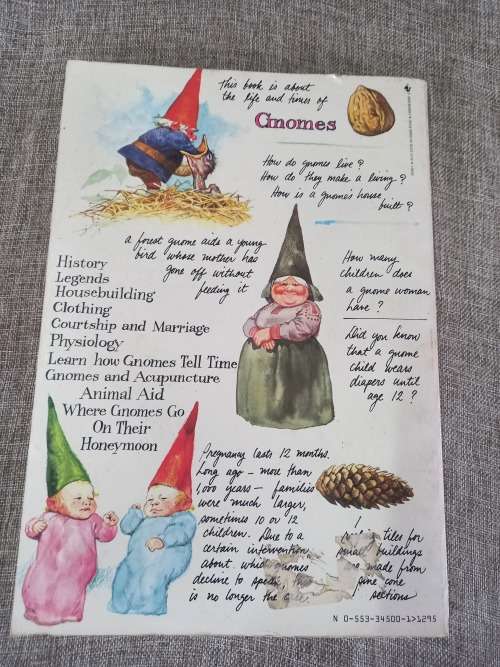 This book is about
the life and times of
Gnomes
How do gnomes live?
How do they make a living?
How is a gnome's house
built?
a forest gnome aids a young
bird whose mother has
gone off without
feeding it
History
Legends
Housebuilding
Clothing
Courtship and Marriage
Physiology
Learn how Gnomes Tell Time
Gnomes and Acupuncture
Animal Aid
Where Gnomes Go
On Their
Honeymoon
How many
children does
a gnome woman
have?
Did you know
that a gnome
child wears
diapers until
age 12?
Pregnancy lasts 12 months.
Long ago – more than
1,000 years – families
were much larger,
sometimes 10 or 12
children. Due to a
certain intervention,
about which gnomes
decline to speak, this
is no longer the case.
tiles for
small buildings
made from
pine cone
sections
N 0-553-34500-1>1295